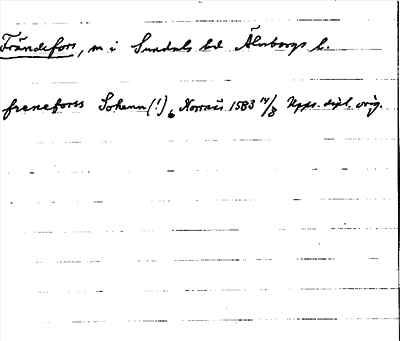 Frändefors, m i Sundals hd Älvsborgs l.
freneforss Sokenn (!), Norraas 1583 14/8 Upps. dipl. orig.